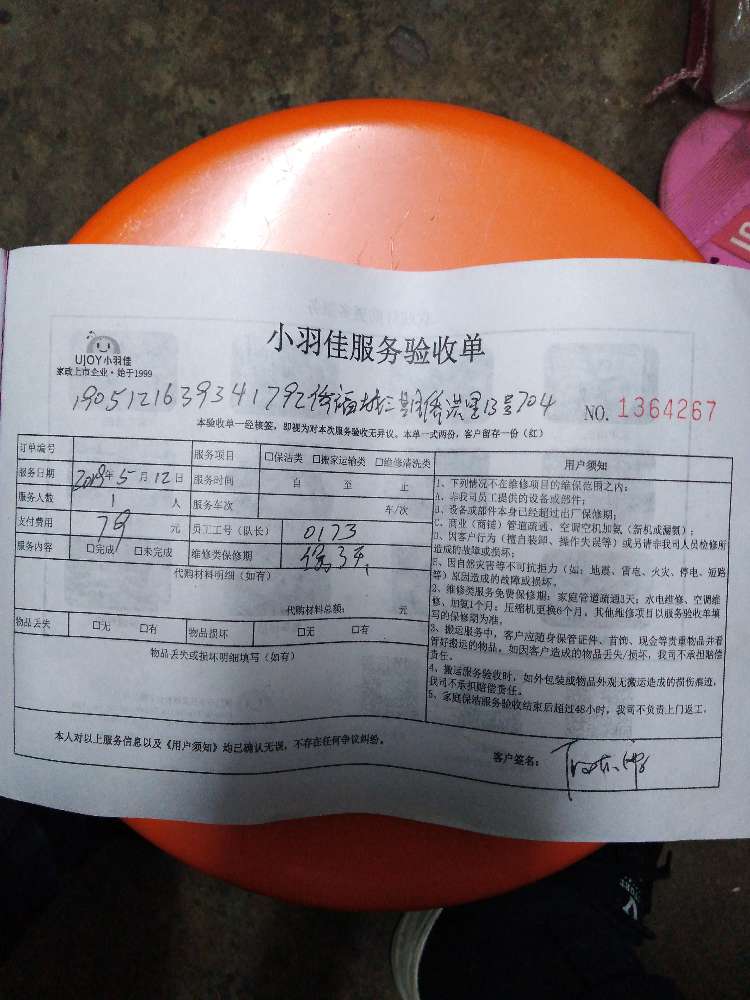 小羽佳服务验收单
UJOY小羽佳
家政上市企业·始于1999
1905121639341792 侨福城三期侨洪里13号704 NO. 1364267
本验收单一经核签，即视为对本次服务验收无异议。本单一式两份，客户留存一份（红）
订单编号 服务项目 □保洁类 □搬家运输类 □维修清洗类
服务日期 2019年5月12日 服务时间 自 至 止
服务人数 1 人 服务车次 车/次
支付费用 79 元 员工工号（队长） 0173
服务内容 □完成 □未完成 维修类保修期
代购材料明细（如有）
代购材料总额： 元
物品丢失 □无 □有 物品损坏 □无 □有
物品丢失或损坏明细填写（如有）
用户须知
1、下列情况不在维修项目的维保范围之内：
A、非我司员工提供的设备或部件；
B、设备或部件本身已经超过出厂保修期；
C、商业（商铺）管道疏通、空调空机加氨（新机或漏氨）；
D、因客户行为（擅自装卸、操作失误等）或另请非我司人员检修所
造成的故障或损坏；
E、因自然灾害等不可抗拒力（如：地震、雷电、火灾、停电、短路
等）原因造成的故障或损坏。
2、维修类服务免费保修期：家庭管道疏通3天；水电维修、空调维
修、加氨1个月；压缩机更换6个月，其他维修项目以服务验收单填
写的保修期为准。
3、搬运服务中，客户应随身保管证件、首饰、现金等贵重物品并看
管好搬运的物品，如因客户造成的物品丢失/损坏，我司不承担赔偿
责任。
4、搬运服务验收时，如外包装或物品外观无搬运造成的损伤痕迹，
我司不承担赔偿责任。
5、家庭保洁服务验收结束后超过48小时，我司不负责上门返工。
本人对以上服务信息以及《用户须知》均已确认无误，不存在任何争议纠纷。
客户签名：